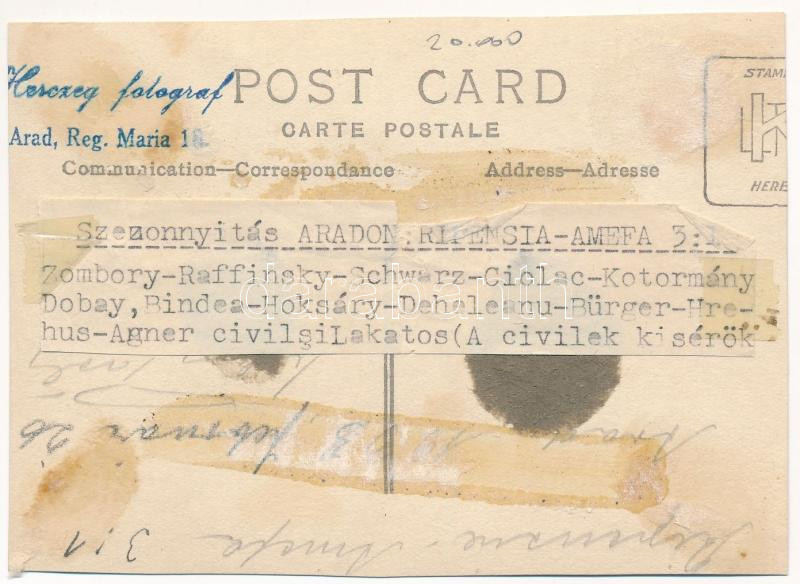 20.000
Herczeg fotograf
Arad, Reg. Maria 18.
POST CARD
CARTE POSTALE
Communication—Correspondance
Address—Adresse
STAMP
HERE
Szezonnyitás ARADON:RIPENSIA-AMEFA 3:1
Zombory-Raffinsky-Schwarz-Ciolac-Kotormány
Dobay,Bindea-Hoksáry-Deheleanu-Bürger-Hre-
hus-Agner civilsiLakatos(A civilek kisérők
darabanth
Arad februar 26
Ripensia - Amefa 3:1